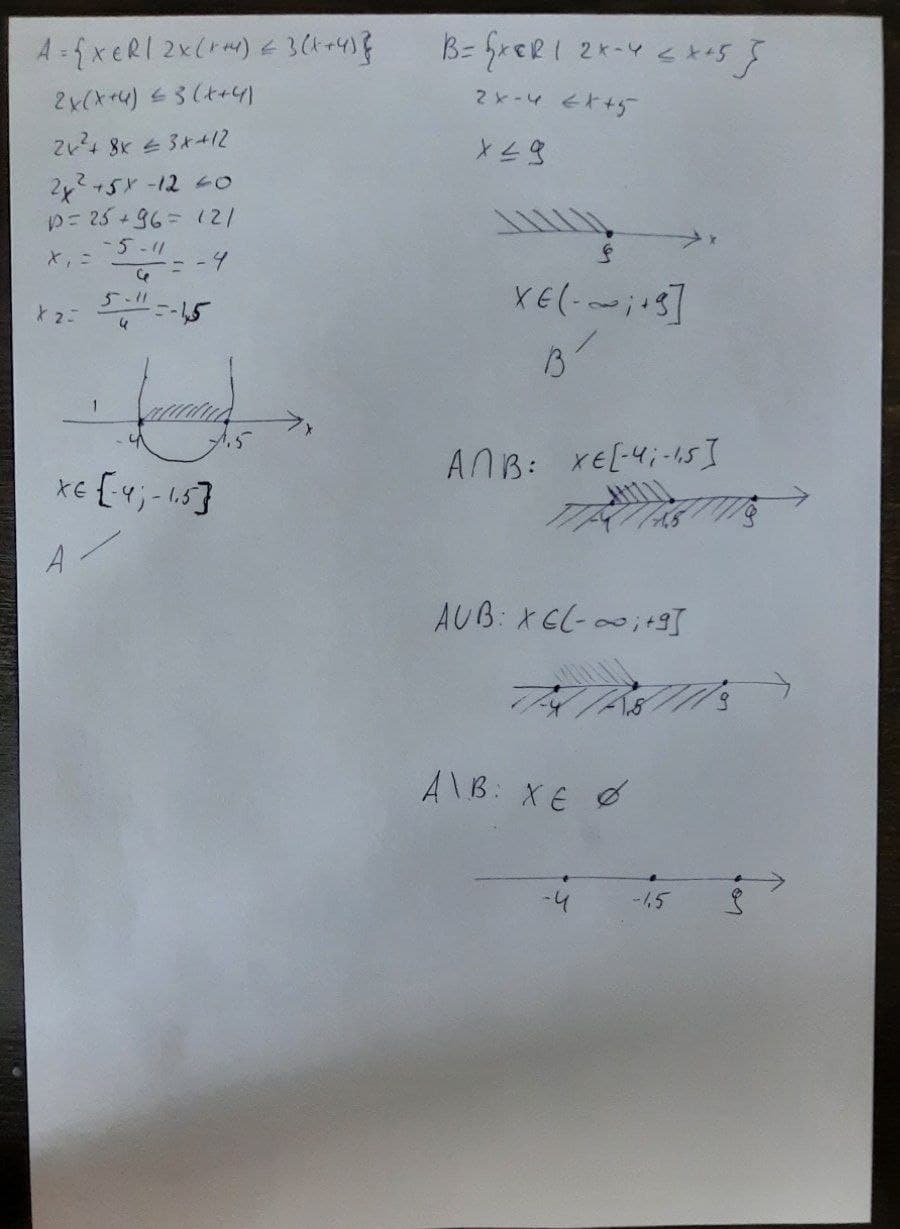 A = {x∈R | 2x(x+4) ≤ 3(x+4)}
2x(x+4) ≤ 3(x+4)
2x² + 8x ≤ 3x+12
2x² + 5x - 12 ≤ 0
D = 25 + 96 = 121
x₁ = (-5-11)/4 = -4
x₂ = (5-11)/4 = -1,5
-4 -1,5 x
x∈[-4; -1,5]
A
B = {x∈R | 2x-4 ≤ x+5}
2x-4 ≤ x+5
x ≤ 9
9 x
x∈(-∞; +9]
B
A∩B: x∈[-4; -1,5]
-4 -1,5 9
A∪B: x∈(-∞; +9]
-4 -1,5 9
A\B: x∈ ∅
-4 -1,5 9